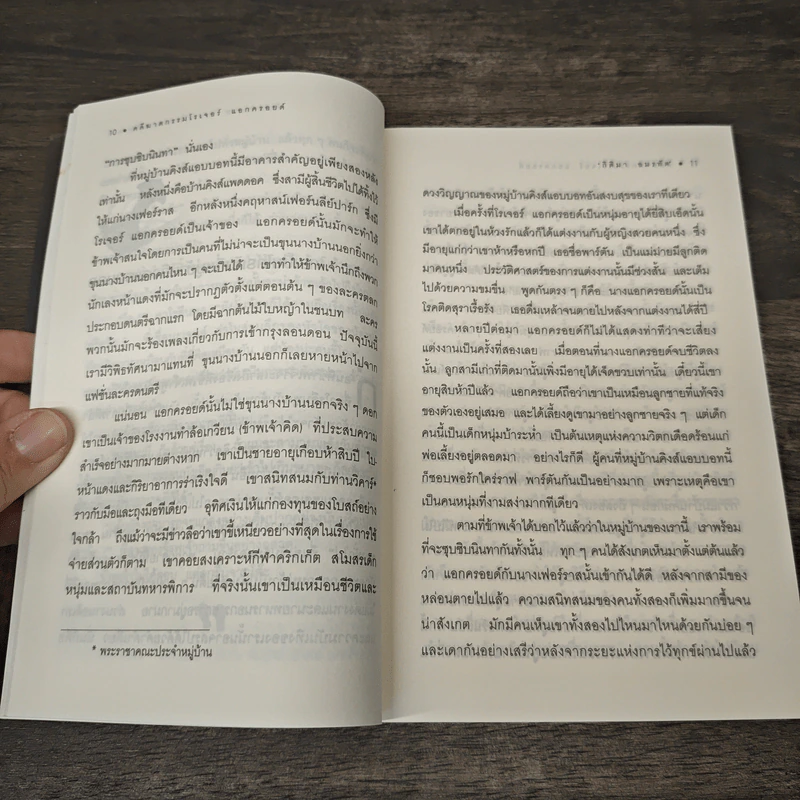 10 ● คดีฆาตกรรมโรเจอร์ แอกครอยด์
"การซุบซิบนินทา" นั่นเอง
ที่หมู่บ้านคิงส์แอบบอทนี้มีอาคารสำคัญอยู่เพียงสองหลัง
เท่านั้น หลังหนึ่งคือบ้านคิงส์แพดดอค ซึ่งสามีผู้สิ้นชีวิตไปได้ทิ้งไว้
ให้แก่นางเฟอร์ราส อีกหลังหนึ่งคฤหาสน์เฟอร์นลีย์ปาร์ก ซึ่งมี
โรเจอร์ แอกครอยด์เป็นเจ้าของ แอกครอยด์นั้นมักจะทำให้
ข้าพเจ้าสนใจโดยการเป็นคนที่ไม่น่าจะเป็นขุนนางบ้านนอกยิ่งกว่า
ขุนนางบ้านนอกคนไหน ๆ จะเป็นได้ เขาทำให้ข้าพเจ้านึกถึงพวก
นักเลงหน้าแดงที่มักจะปรากฏตัวตั้งแต่ตอนต้น ๆ ของละครตลก
ประกอบดนตรีฉากแรก โดยมีฉากต้นไม้ใบหญ้าในชนบท ละคร
พวกนั้นมักจะร้องเพลงเกี่ยวกับการเข้ากรุงลอนดอน ปัจจุบันนี้
เรามีวิพิธทัศนามาแทนที่ ขุนนางบ้านนอกก็เลยหายหน้าไปจาก
แฟชั่นละครดนตรี
แน่นอน แอกครอยด์นั้นไม่ใช่ขุนนางบ้านนอกจริง ๆ ดอก
เขาเป็นเจ้าของโรงงานทำล้อเกวียน (ข้าพเจ้าคิด) ที่ประสบความ
สำเร็จอย่างมากมายต่างหาก เขาเป็นชายอายุเกือบห้าสิบปี ใบ
หน้าแดงและกิริยาอาการร่าเริงใจดี เขาสนิทสนมกับท่านวิคาร์*
ราวกับมือและถุงมือทีเดียว อุทิศเงินให้แก่กองทุนของโบสถ์อย่าง
ใจกล้า ถึงแม้ว่าจะมีข่าวลือว่าเขาขี้เหนียวอย่างที่สุดในเรื่องการใช้
จ่ายส่วนตัวก็ตาม เขาคอยสงเคราะห์กีฬาคริกเก็ต สโมสรเด็ก
หนุ่มและสถาบันทหารพิการ ที่จริงนั้นเขาเป็นเหมือนชีวิตและ
* พระราชาคณะประจำหมู่บ้าน
กิติมา อมรทัต ● 11
ดวงวิญญาณของหมู่บ้านคิงส์แอบบอทอันสงบสุขของเราทีเดียว
เมื่อครั้งที่โรเจอร์ แอกครอยด์เป็นหนุ่มอายุได้ยี่สิบเอ็ดนั้น
เขาได้ตกอยู่ในห้วงรักแล้วก็ได้แต่งงานกับผู้หญิงสวยคนหนึ่ง ซึ่ง
มีอายุแก่กว่าเขาห้าหรือหกปี เธอชื่อพาร์ตัน เป็นแม่ม่ายมีลูกติด
มาคนหนึ่ง ประวัติศาสตร์ของการแต่งงานนั้นมีช่วงสั้น และเต็ม
ไปด้วยความขมขื่น พูดกันตรงๆ ก็คือ นางแอกครอยด์นั้นเป็น
โรคติดสุราเรื้อรัง เธอดื่มเหล้าจนตายไปหลังจากแต่งงานได้สี่ปี
หลายปีต่อมา แอกครอยด์ก็ไม่ได้แสดงท่าทีว่าจะเสี่ยง
แต่งงานเป็นครั้งที่สองเลย เมื่อตอนที่นางแอกครอยด์จบชีวิตลง
นั้น ลูกสามีเก่าที่ติดมานั้นเพิ่งมีอายุได้เจ็ดขวบเท่านั้น เดี๋ยวนี้เขา
อายุสิบห้าปีแล้ว แอกครอยด์ถือว่าเขาเป็นเหมือนลูกชายที่แท้จริง
ของตัวเองอยู่เสมอ และได้เลี้ยงดูเขามาอย่างลูกชายจริง ๆ แต่เด็ก
คนนี้เป็นเด็กหนุ่มบ้าระห่ำ เป็นต้นเหตุแห่งความวิตกเดือดร้อนแก่
พ่อเลี้ยงอยู่ตลอดมา อย่างไรก็ดี ผู้คนที่หมู่บ้านคิงส์แอบบอทนี้
ก็ชอบพอรักใคร่ราฟ พาร์ตันกันเป็นอย่างมาก เพราะเหตุคือเขา
เป็นคนหนุ่มที่งามสง่ามากทีเดียว
ตามที่ข้าพเจ้าได้บอกไว้แล้วว่าในหมู่บ้านของเรานี้ เราพร้อม
ที่จะซุบซิบนินทากันทั้งนั้น ทุก ๆ คนได้สังเกตเห็นมาตั้งแต่ต้นแล้ว
ว่า แอกครอยด์กับนางเฟอร์ราสนั้นเข้ากันได้ดี หลังจากสามีของ
หล่อนตายไปแล้ว ความสนิทสนมของคนทั้งสองก็เพิ่มมากขึ้นจน
น่าสังเกต มักมีคนเห็นเขาทั้งสองไปไหนมาไหนด้วยกันบ่อย ๆ
และเดากันอย่างเสรีว่าหลังจากระยะแห่งการไว้ทุกข์ผ่านไปแล้ว